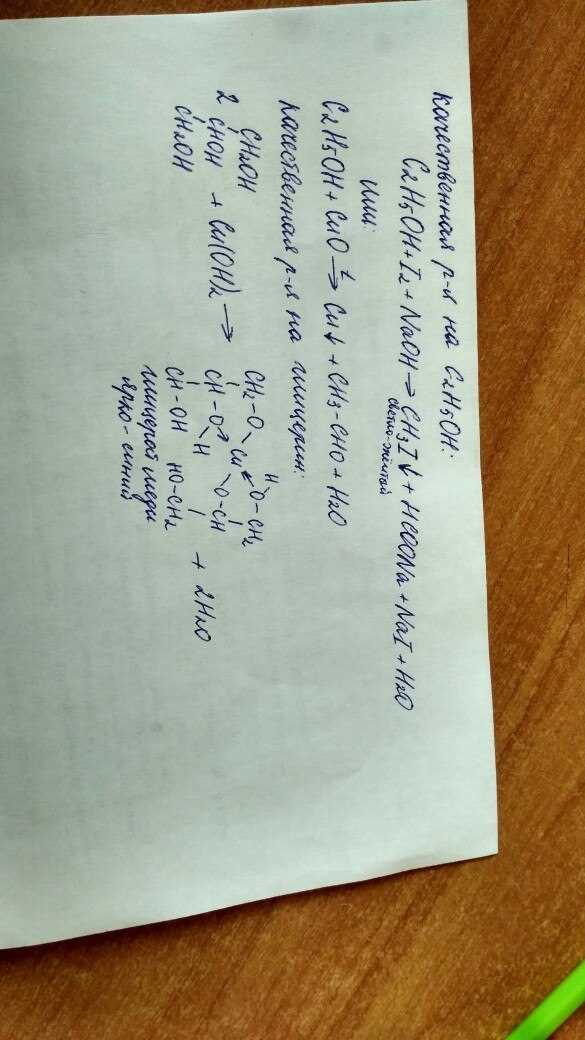 Качественная р-я на C2H5OH:
C2H5OH + I2 + NaOH → CH3I↓ + HCOONa + NaI + H2O
светло-жёлтый
Или:
C2H5OH + CuO →t Cu↓ + CH3-CHO + H2O
Качественная р-я на глицерин:
CH2OH CH2-O H O-CH2
2 CHOH + Cu(OH)2 → CH-O Cu O-CH + 2H2O
CH2OH CH-OH H HO-CH2
глицерат меди
ярко-синий